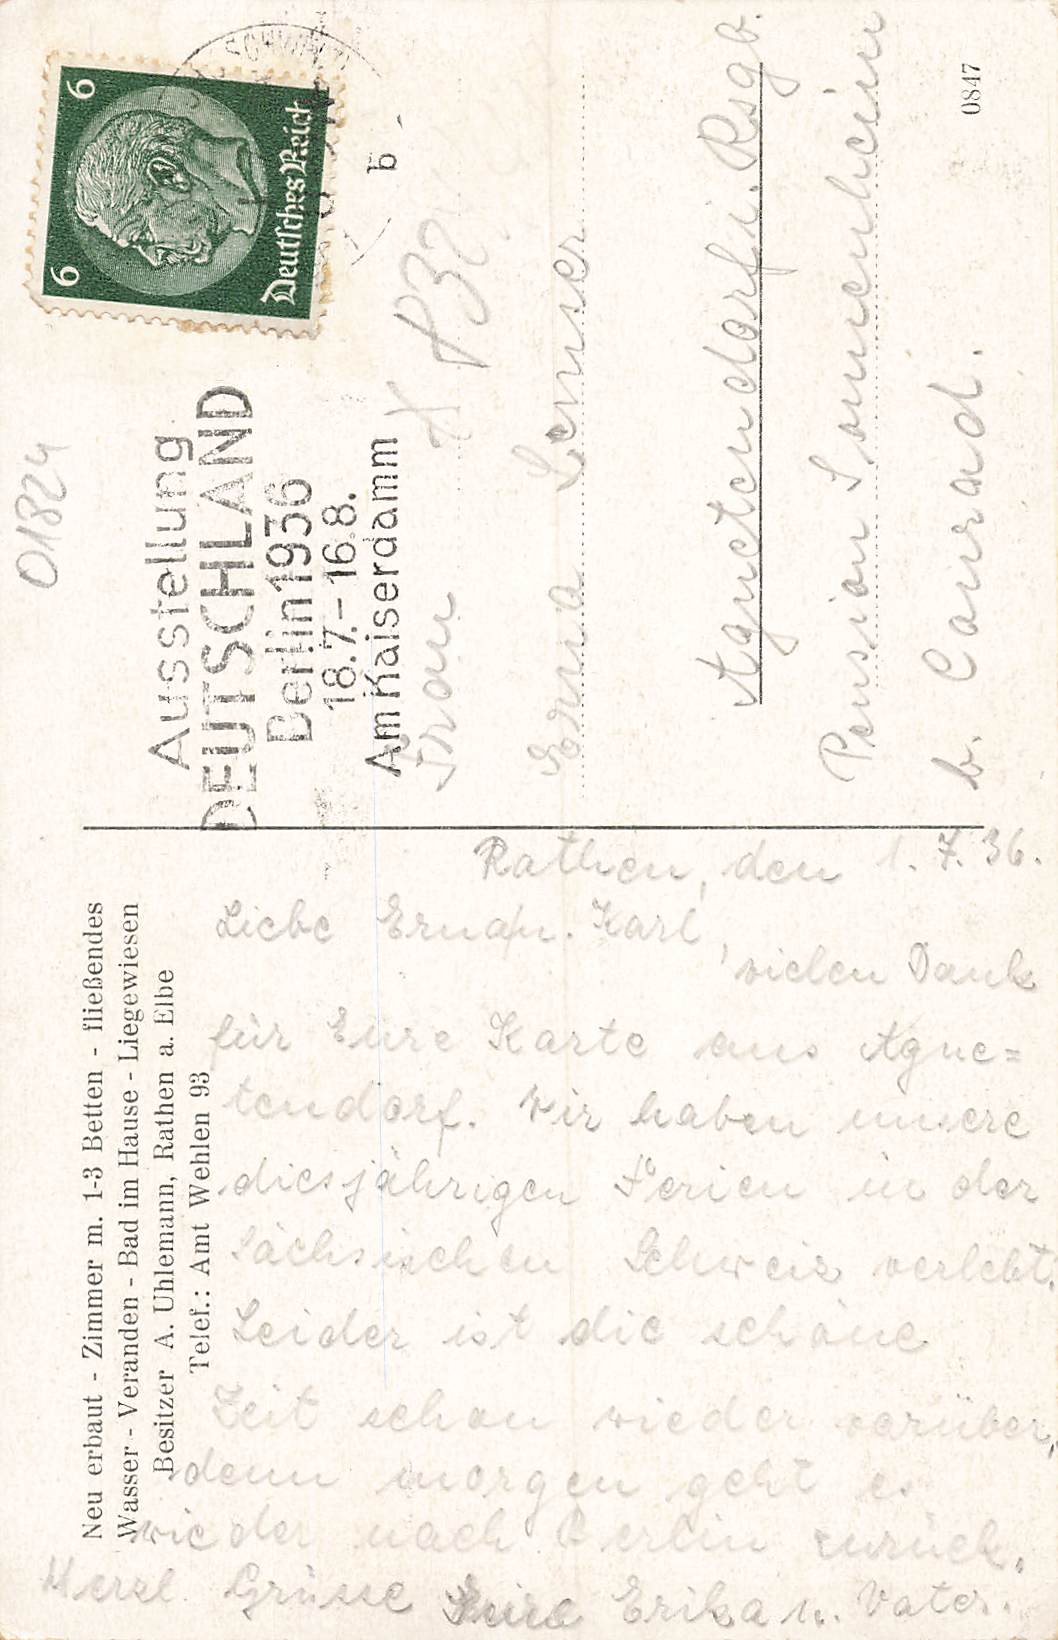 01824
6 6
Deutsches Reich
b
Ausstellung
DEUTSCHLAND
Berlin 1936
18.7.-16.8.
Am Kaiserdamm
Frau
Erna
Agnetendorf i. Rsgb.
Pension Sonnenheim
b. Conrad.
0847
Neu erbaut - Zimmer m. 1-3 Betten - fließendes
Wasser - Veranden - Bad im Hause - Liegewiesen
Besitzer A. Uhlemann, Rathen a. Elbe
Telef.: Amt Wehlen 93
Rathen, den 1.7.36.
Liebe Erna u. Karl,
vielen Dank
für Eure Karte aus Agne=
tendorf. Wir haben unsere
diesjährigen Ferien in der
sächsischen Schweiz verlebt.
Leider ist die schöne
Zeit schon wieder vorüber,
denn morgen geht es
wieder nach Berlin zurück.
Herzl. Grüsse Eure Erika u. Vater.